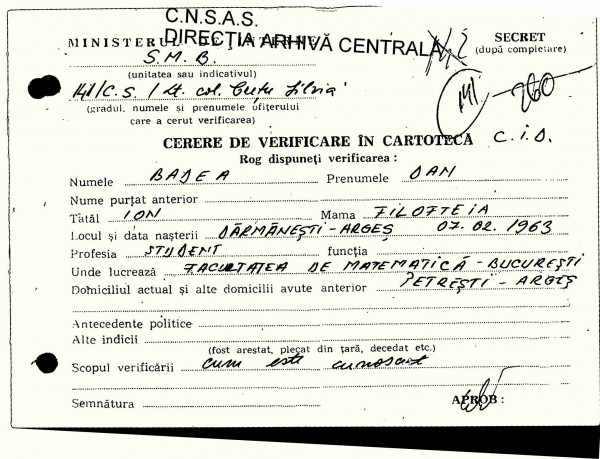 C.N.S.A.S.
DIRECTIA ARHIVĂ CENTRALĂ
MINISTERUL DE INTERNE
SECRET
(după completare)
S.M.B.
(unitatea sau indicativul)
141/C.S. / Lt. col.
(gradul, numele și prenumele ofițerului
care a cerut verificarea)
141
260
CERERE DE VERIFICARE ÎN CARTOTECĂ C.I.D.
Rog dispuneți verificarea :
Numele BADEA Prenumele DAN
Nume purtat anterior
Tatăl ION Mama FILOFTEIA
Locul și data nașterii DĂRMĂNEȘTI - ARGEȘ 07.02.1963
Profesia STUDENT funcția
Unde lucrează FACULTATEA DE MATEMATICĂ - BUCUREȘTI
Domiciliul actual și alte domicilii avute anterior PETREȘTI - ARGEȘ
Antecedente politice
Alte indicii
(fost arestat, plecat din țară, decedat etc.)
Scopul verificării cum este cunoscut
Semnătura APROB :